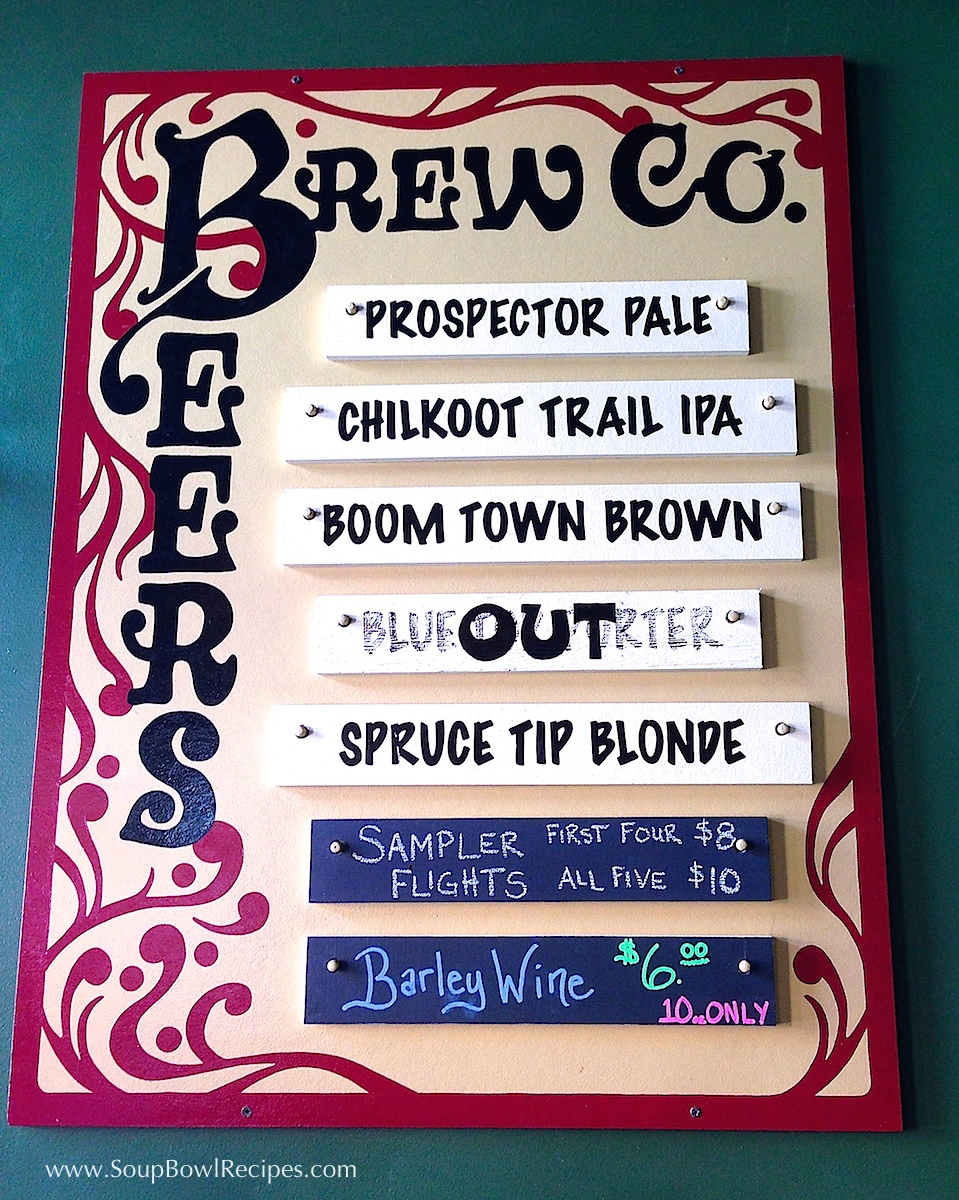 BREW CO.
BEERS
PROSPECTOR PALE
CHILKOOT TRAIL IPA
BOOM TOWN BROWN
BLUE OUT RTER
SPRUCE TIP BLONDE
SAMPLER FIRST FOUR $8
FLIGHTS ALL FIVE $10
Barley Wine $6.00
10oz ONLY
www.SoupBowlRecipes.com